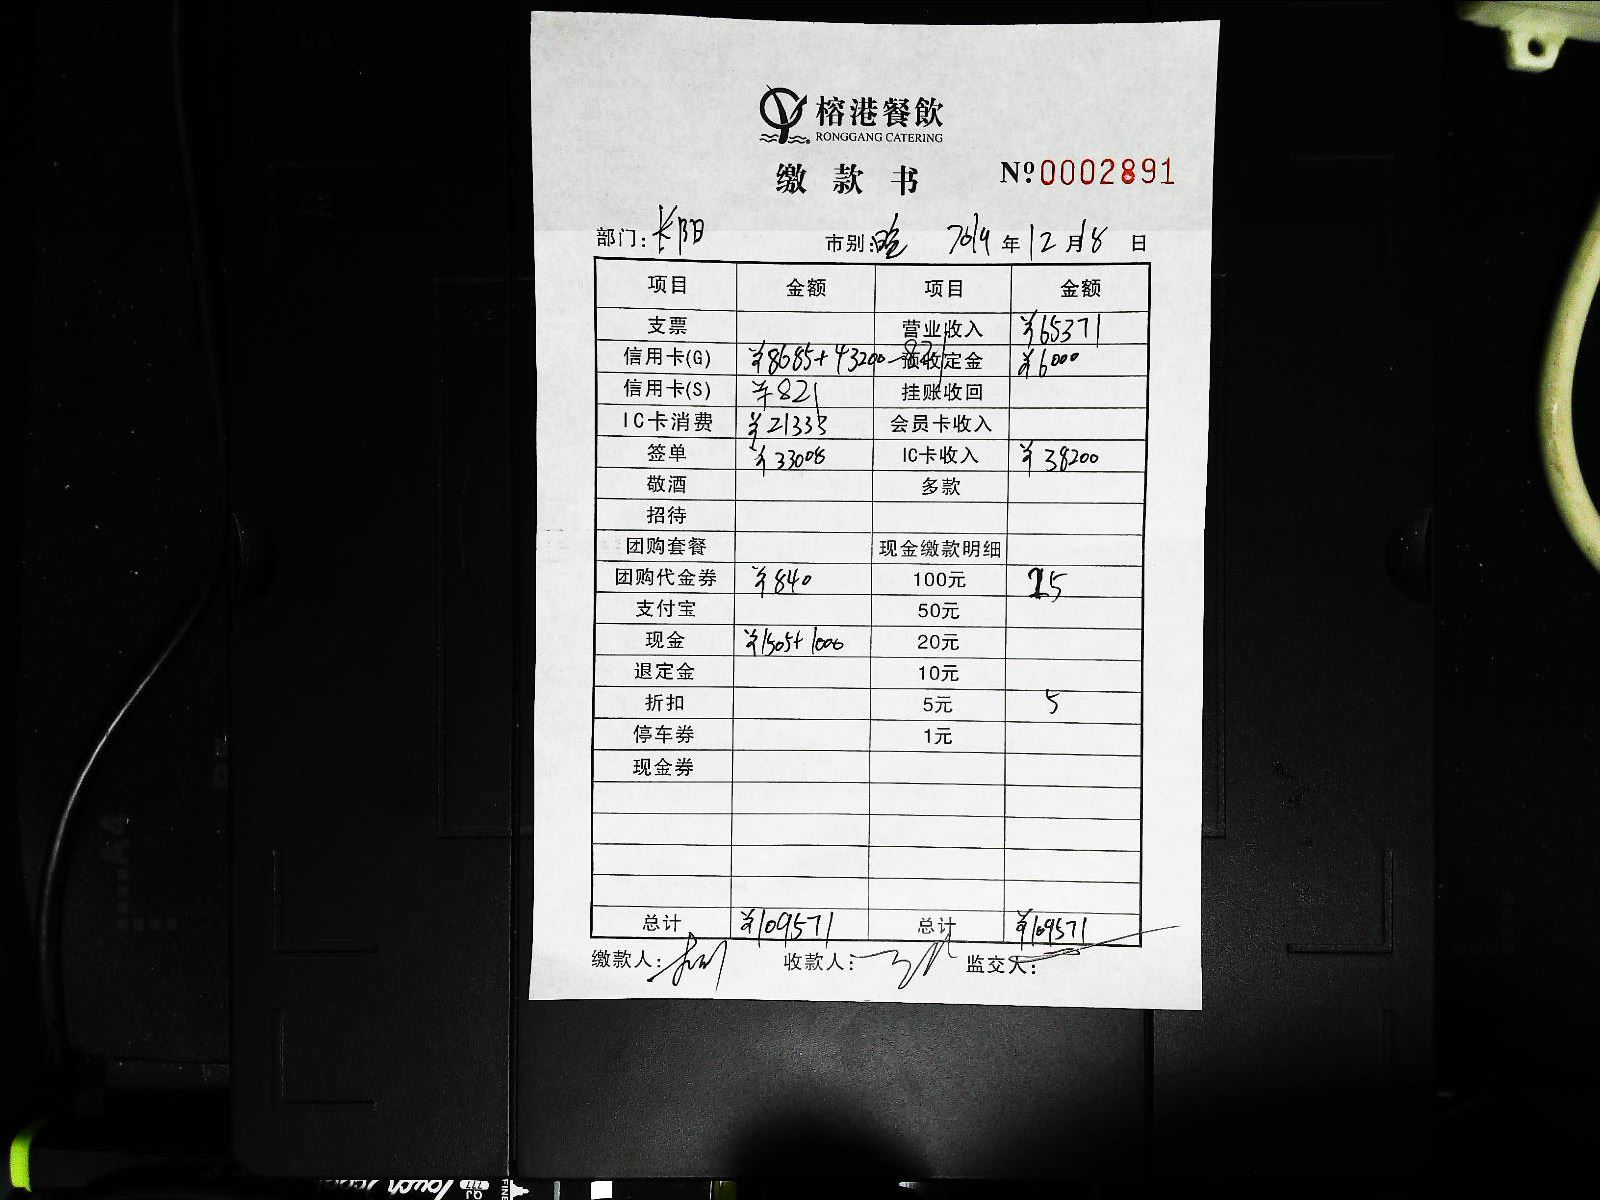 榕港餐飲
RONGGANG CATERING
缴款书 Nº0002891
部门:长阳 市别:晚 2019年12月18日
项目 金额 项目 金额
支票 营业收入 ¥65371
信用卡(G) ¥8685+43200-821 预收定金 ¥6000
信用卡(S) ¥821 挂账收回
IC卡消费 ¥21333 会员卡收入
签单 ¥33008 IC卡收入 ¥38200
敬酒 多款
招待
团购套餐 现金缴款明细
团购代金券 ¥840 100元 25
支付宝 50元
现金 ¥1505+1000 20元
退定金 10元
折扣 5元 5
停车券 1元
现金券
总计 ¥109571 总计 ¥109571
缴款人: 收款人: 监交人: